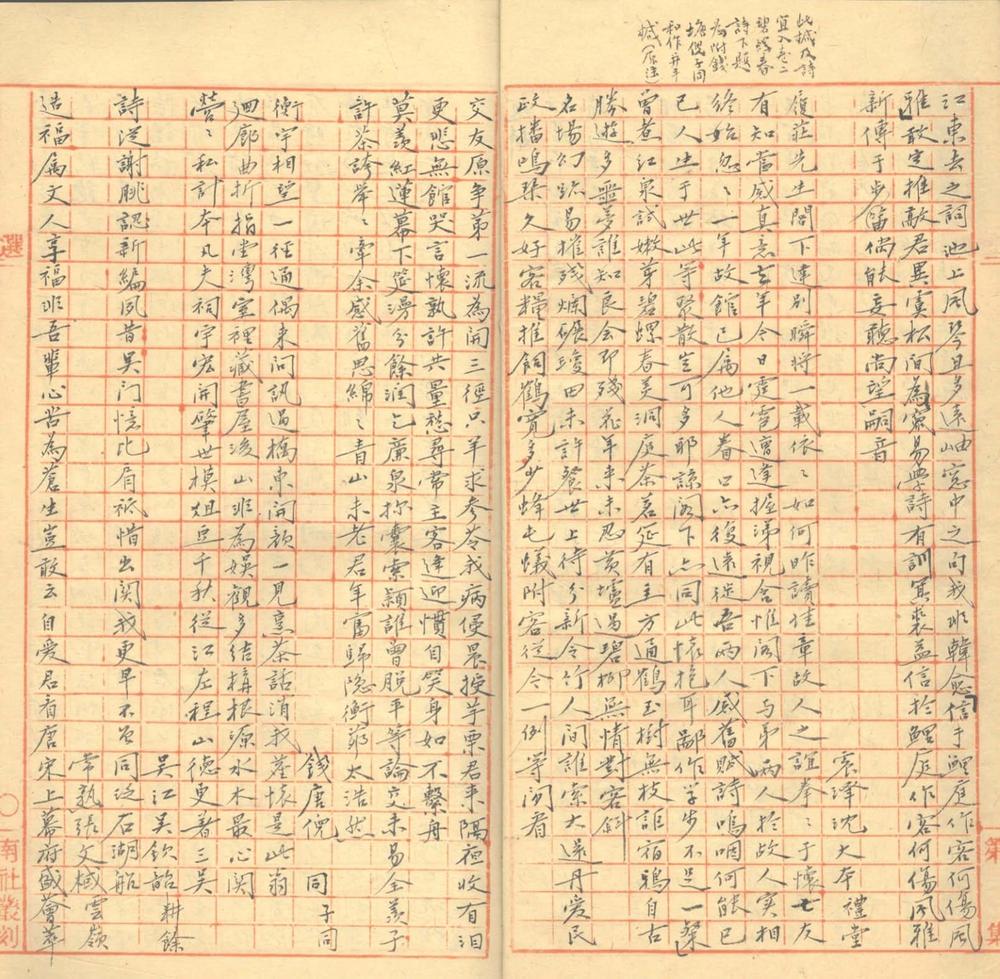 此械及詩
宜入卷二
碧螺春
詩下題
為附錢
塘倪子同
和作并手
械（原注）
江東去之詞池上風琴且多遠岫窓中之句我非韓愈信于鯉庭作客何傷風
雅敢定推敲君異虞松閒為窺易學詩有訓冥裘益信於鯉庭作客何傷風雅
新傳于步笛偶能妄聽尚望嗣音
震澤沈大本禮堂
履莊先生閣下違別瞬將一載依依如何昨讀佳章故人之誼拳拳于懷亡友
有知當感真意去年今日雯霓遭達握涕視含惟閣下与弟兩人於故人實相
終始忽忽一年故館已屬他人眷口亦復遠徙吾兩人感舊賦詩嗚咽何能已
已人生于世此等聚散豈可多耶諒閣下亦同此懷抱耳鄙作學步不足一粲
曾煮江泉試嫩芽碧螺春美洞庭茶茗筵有主方通鶴玉樹無枝詎宿鴉自古
勝遊多噩夢誰知良會即殘花年來未忍黃壚過碧柳無情對客斜
名場幻跡易摧殘爛碾瓊田未許餐世上待分新令竹人間誰索大還丹愛民
政播鳴琴久好客糧推飼鶴寬多少蜂屯蟻附客從今一例等閒看
交友原爭第一流為開三徑只羊求參苓我病便晨授芋栗君來隔夜收有淚
更悲無館哭言懷孰許共量愁尋常主客逢迎慣自笑身如不繫舟
莫羨紅蓮幕下筵漫分餘潤乞廉泉扲囊索穎誰曾脫平等論交未易全羨子
許茶誇舉舉牽余感舊思綿綿青山未老君年富歸隱衡茆太浩然
錢唐倪 同 子同
衡宇相望一徑通偶來問訊過橋東開顏一見烹茶話消我塵懷是此翁
迴廊曲折指堂灣室裡藏書屋後山非為娛觀多結構根源水木最心関
營營私計本凡夫祠宇宏開肇世模俎豆千秋從江左程山德更著三吳
吳江吳欽韶耕餘
詩從謝朓認新編夙昔吳門憶比肩祇惜出関我更早不曾同泛石湖船
常熟張文棫雲嶺
造福屬文人享福非吾輩心苦為蒼生豈敢云自愛君看唐宋上幕府盛薈萃
選
一
○
南社叢刻
第
集